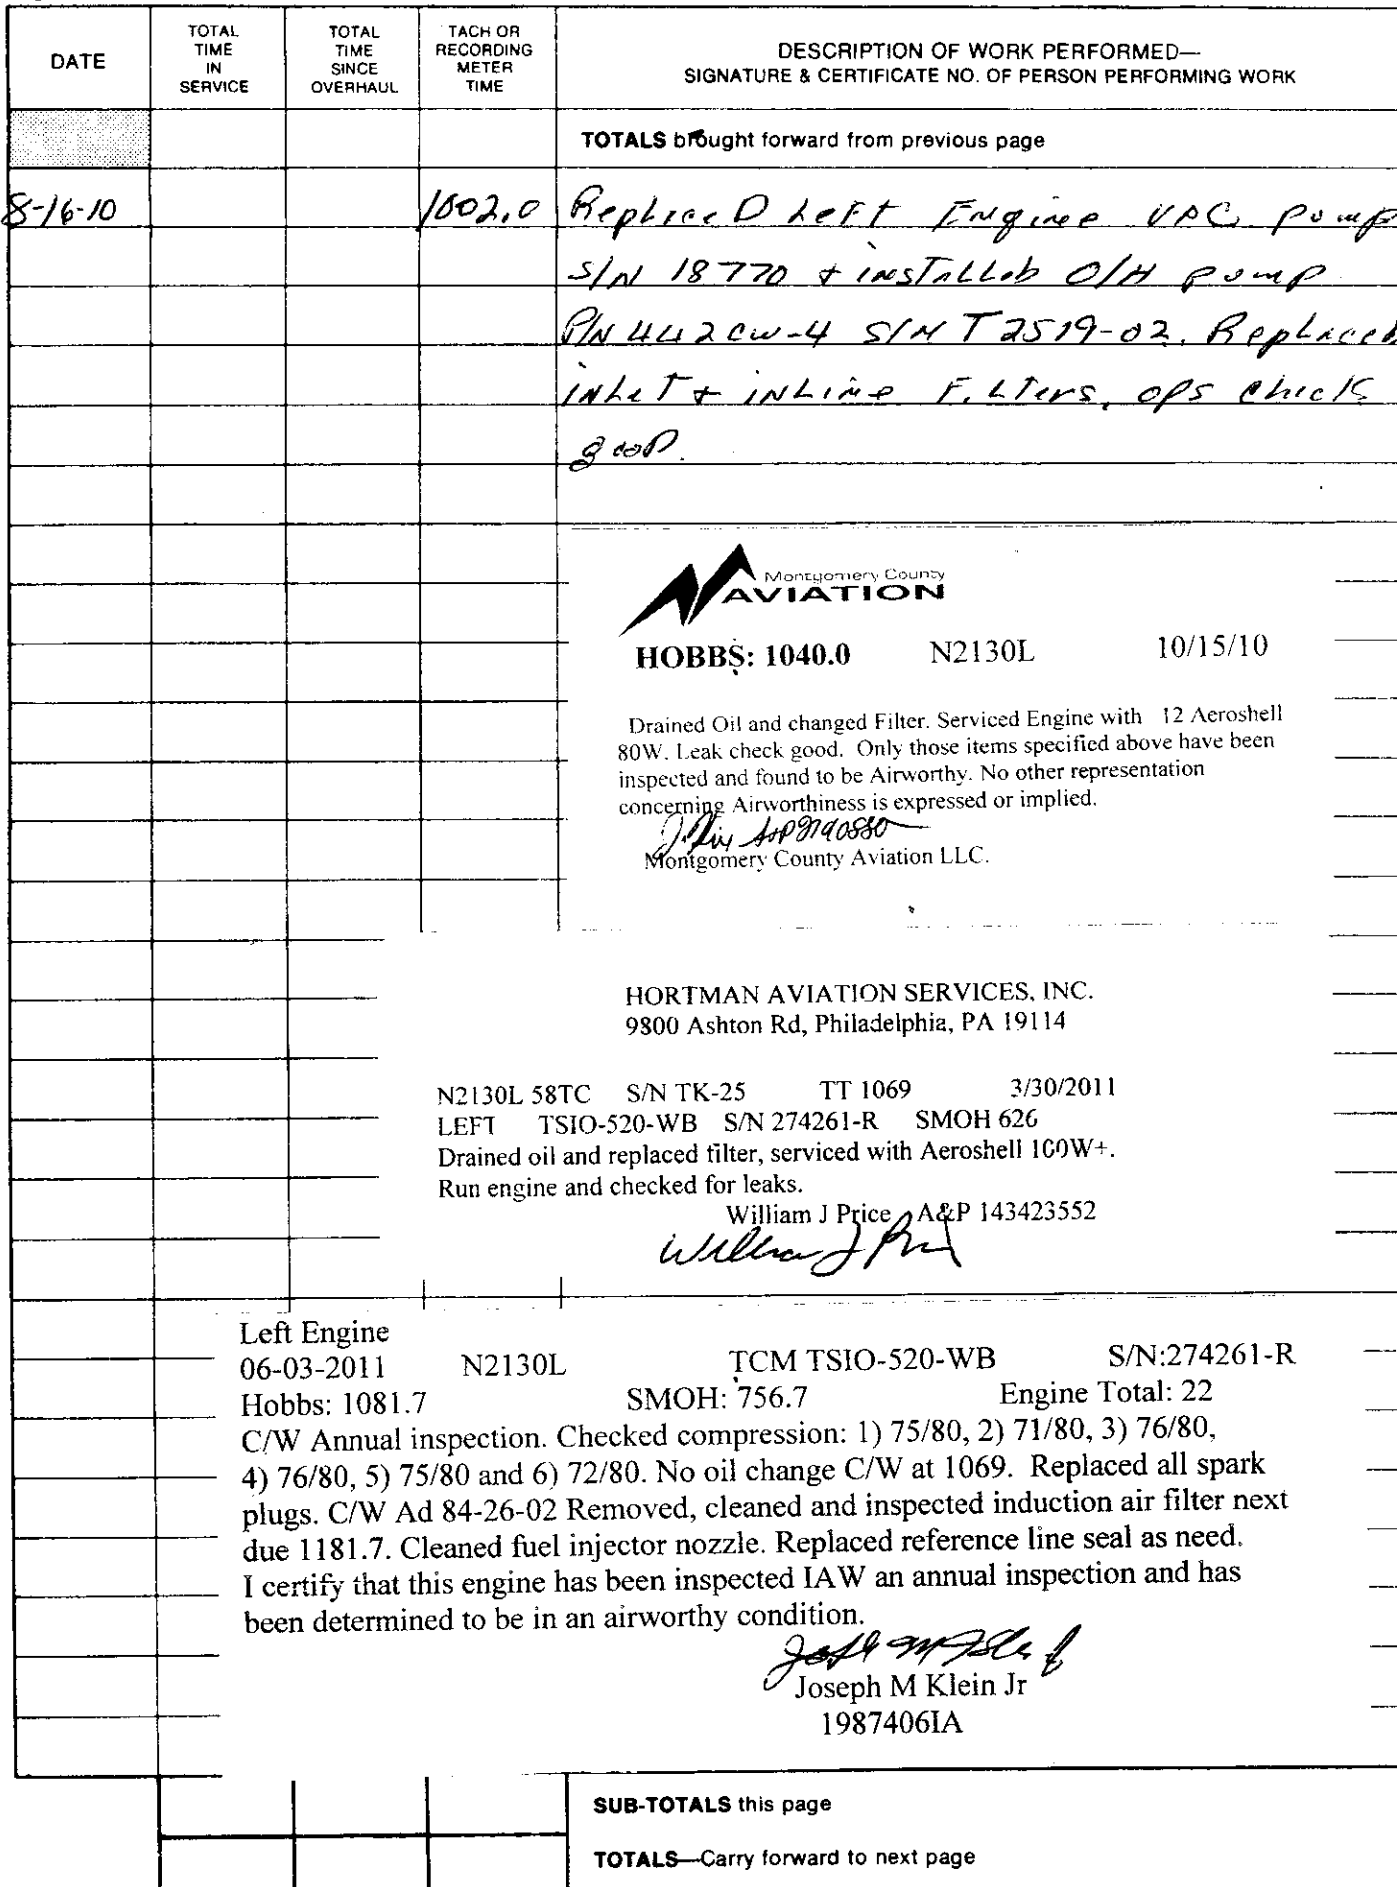 DATE
TOTAL TIME IN SERVICE
TOTAL TIME SINCE OVERHAUL
TACH OR RECORDING METER TIME
DESCRIPTION OF WORK PERFORMED—
SIGNATURE & CERTIFICATE NO. OF PERSON PERFORMING WORK
TOTALS brought forward from previous page
8-16-10 1002.0 ReplaceD Left Engine VAC pump
S/N 18770 + installed O/H pump
P/N 442CW-4 S/N T2519-02. Replaced
inLet + inLine FiLters, ops check
gooD.
Montgomery County
AVIATION
HOBBS: 1040.0 N2130L 10/15/10
Drained Oil and changed Filter. Serviced Engine with 12 Aeroshell
80W. Leak check good. Only those items specified above have been
inspected and found to be Airworthy. No other representation
concerning Airworthiness is expressed or implied.
Montgomery County Aviation LLC.
HORTMAN AVIATION SERVICES, INC.
9800 Ashton Rd, Philadelphia, PA 19114
N2130L 58TC S/N TK-25 TT 1069 3/30/2011
LEFT TSIO-520-WB S/N 274261-R SMOH 626
Drained oil and replaced filter, serviced with Aeroshell 100W+.
Run engine and checked for leaks.
William J Price A&P 143423552
William J Price
Left Engine
06-03-2011 N2130L TCM TSIO-520-WB S/N:274261-R
Hobbs: 1081.7 SMOH: 756.7 Engine Total: 22
C/W Annual inspection. Checked compression: 1) 75/80, 2) 71/80, 3) 76/80,
4) 76/80, 5) 75/80 and 6) 72/80. No oil change C/W at 1069. Replaced all spark
plugs. C/W Ad 84-26-02 Removed, cleaned and inspected induction air filter next
due 1181.7. Cleaned fuel injector nozzle. Replaced reference line seal as need.
I certify that this engine has been inspected IAW an annual inspection and has
been determined to be in an airworthy condition.
Joseph M Klein Jr
1987406IA
SUB-TOTALS this page
TOTALS—Carry forward to next page